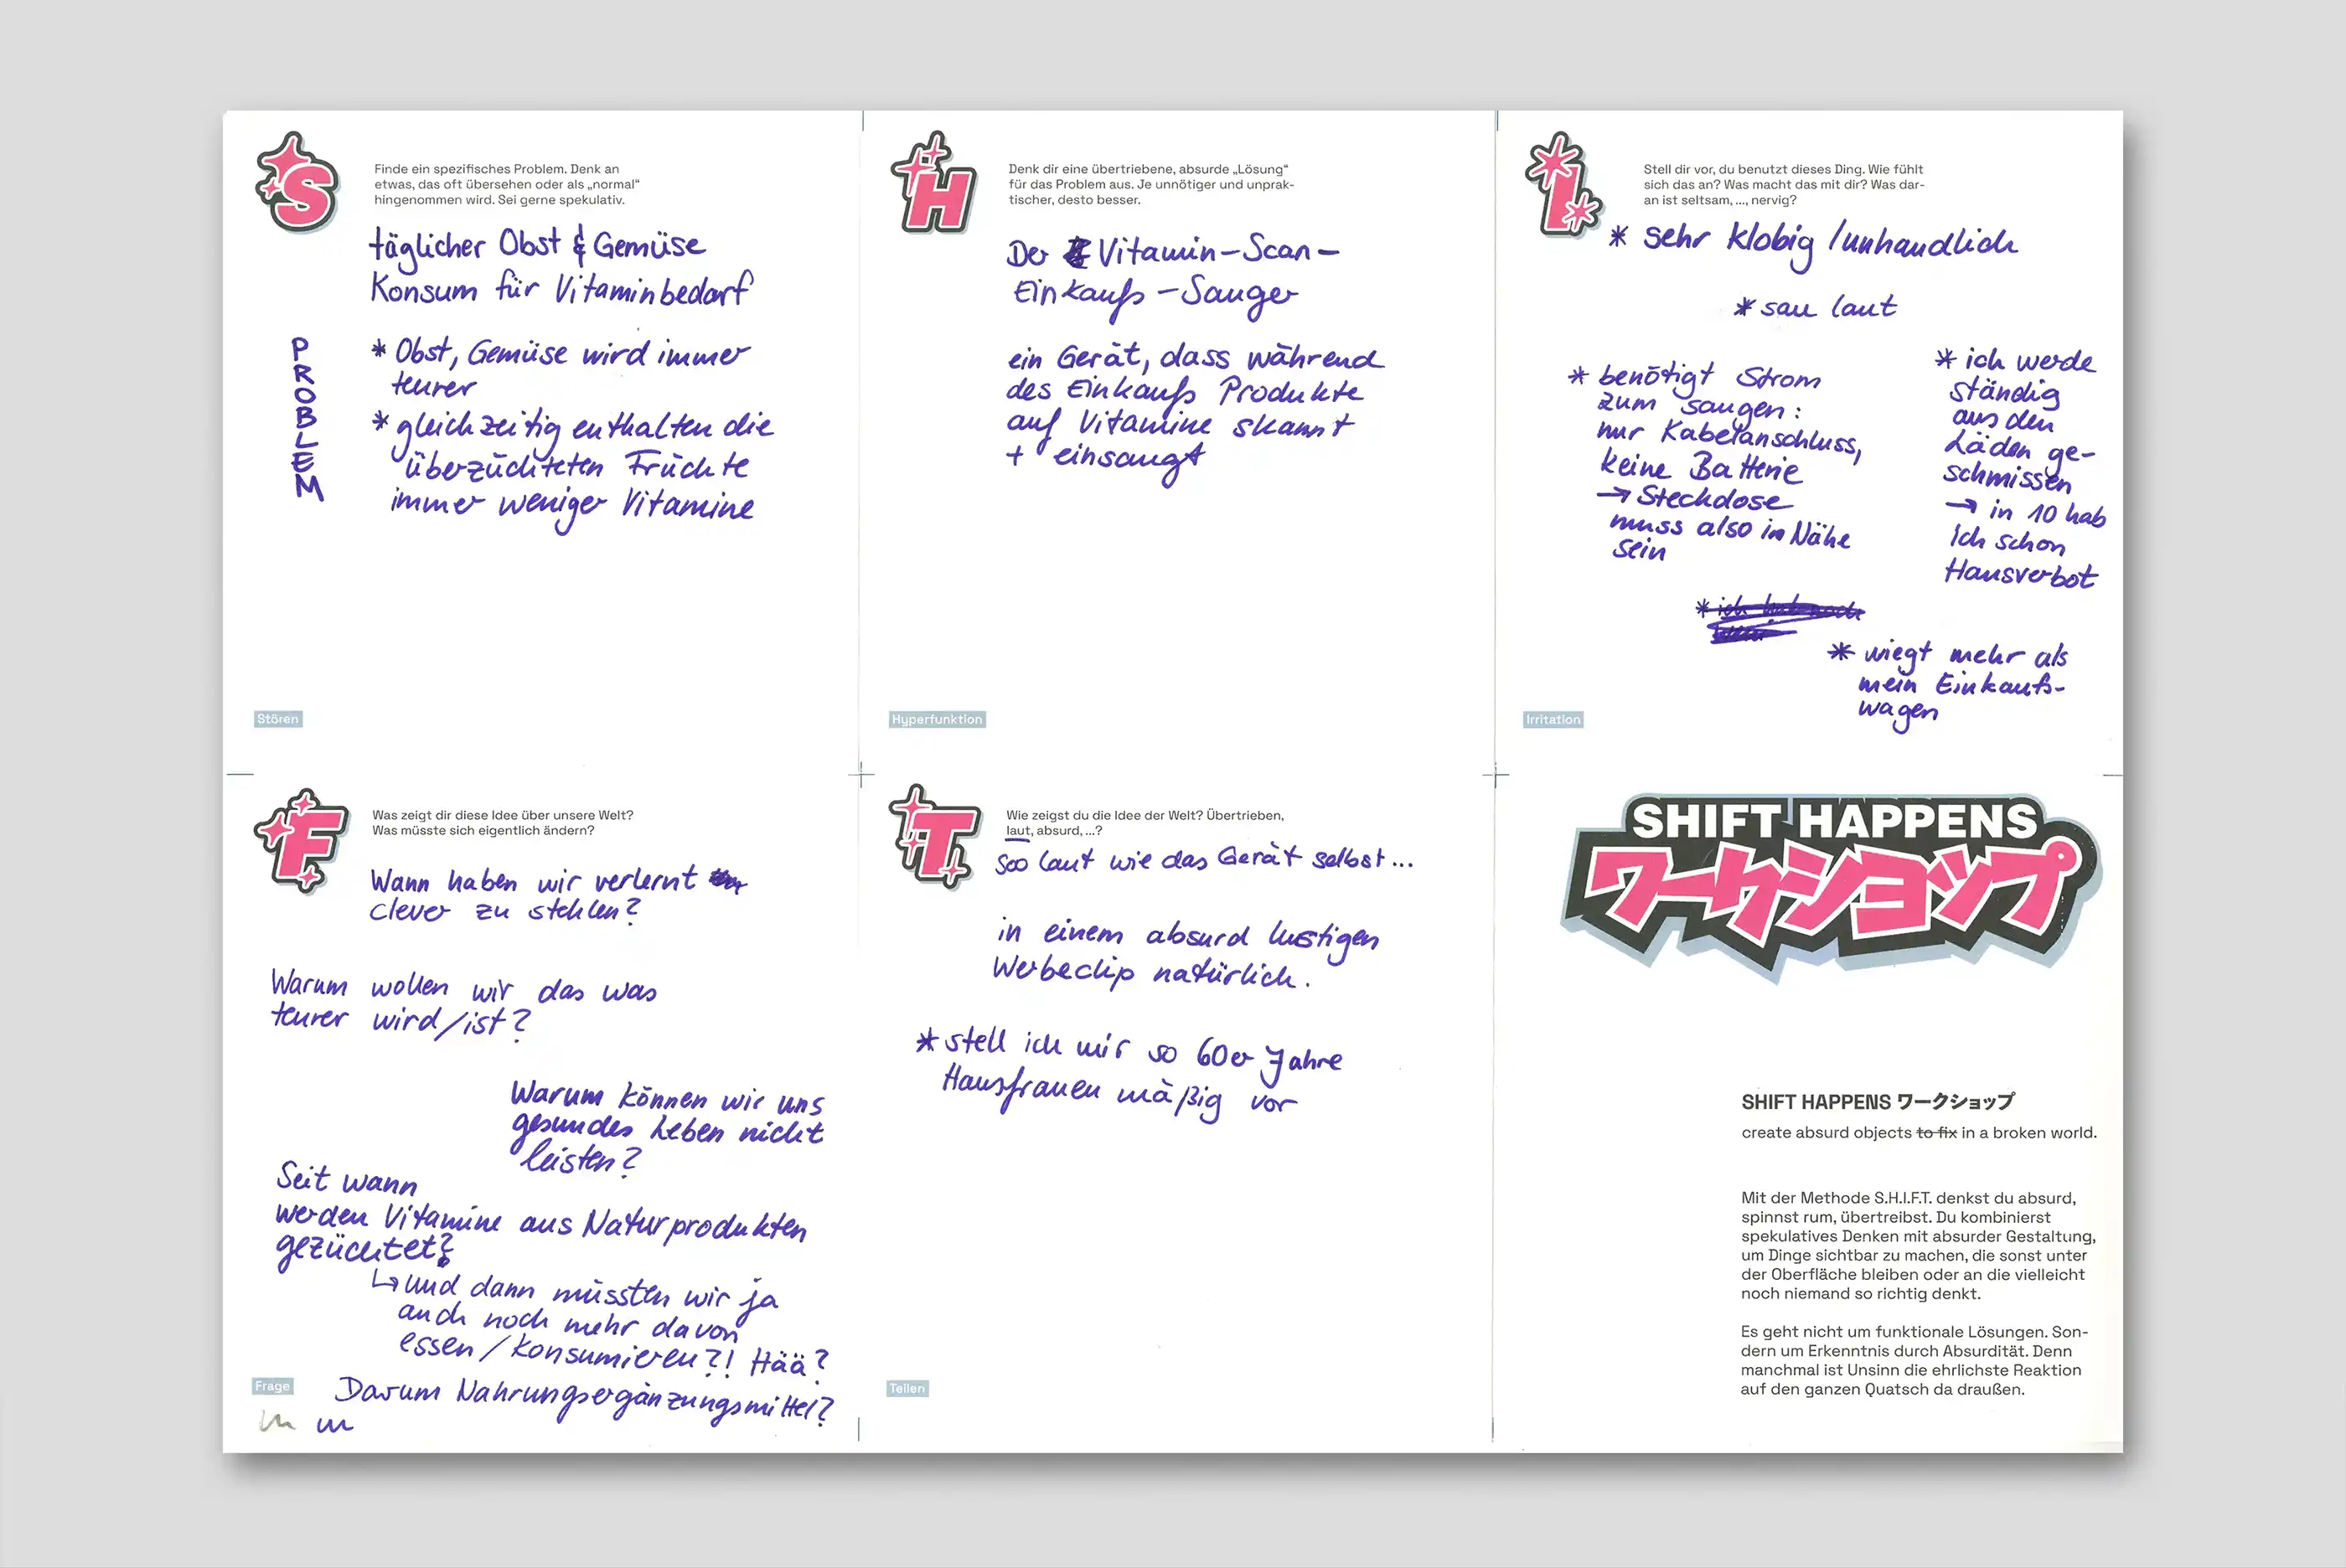 S
Finde ein spezifisches Problem. Denk an
etwas, das oft übersehen oder als „normal“
hingenommen wird. Sei gerne spekulativ.
täglicher Obst & Gemüse
Konsum für Vitaminbedarf
PROBLEM
* Obst, Gemüse wird immer
teurer
* gleichzeitig enthalten die
überzüchteten Früchte
immer weniger Vitamine
Stören
H
Denk dir eine übertriebene, absurde „Lösung“
für das Problem aus. Je unnötiger und unprak-
tischer, desto besser.
Der Vitamin-Scan-
Einkaufs-Sauger
ein Gerät, dass während
des Einkaufs Produkte
auf Vitamine skannt
+ einsaugt
Hyperfunktion
I
Stell dir vor, du benutzt dieses Ding. Wie fühlt
sich das an? Was macht das mit dir? Was dar-
an ist seltsam, ..., nervig?
* sehr klobig / unhandlich
* sau laut
* benötigt Strom
zum saugen:
nur Kabelanschluss,
keine Batterie
→ Steckdose
muss also in Nähe
sein
* ich werde
ständig
aus den
Läden ge-
schmissen
→ in 10 hab
Ich schon
Hausverbot
* wiegt mehr als
mein Einkaufs-
wagen
Irritation
F
Was zeigt dir diese Idee über unsere Welt?
Was müsste sich eigentlich ändern?
Wann haben wir verlernt
clever zu stehlen?
Warum wollen wir das was
teurer wird/ist?
Warum können wir uns
gesundes Leben nicht
leisten?
Seit wann
werden Vitamine aus Naturprodukten
gezüchtet?
↳ und dann müssten wir ja
auch noch mehr davon
essen/konsumieren?! Hää?
Darum Nahrungsergänzungsmittel?
Frage
T
Wie zeigst du die Idee der Welt? Übertrieben,
laut, absurd, ...?
Soo laut wie das Gerät selbst...
in einem absurd lustigen
Werbeclip natürlich.
* stell ich mir so 60er Jahre
Hausfrauen mäßig vor
Teilen
SHIFT HAPPENS
ワークショップ
SHIFT HAPPENS ワークショップ
create absurd objects to fix in a broken world.
Mit der Methode S.H.I.F.T. denkst du absurd,
spinnst rum, übertreibst. Du kombinierst
spekulatives Denken mit absurder Gestaltung,
um Dinge sichtbar zu machen, die sonst unter
der Oberfläche bleiben oder an die vielleicht
noch niemand so richtig denkt.
Es geht nicht um funktionale Lösungen. Son-
dern um Erkenntnis durch Absurdität. Denn
manchmal ist Unsinn die ehrlichste Reaktion
auf den ganzen Quatsch da draußen.